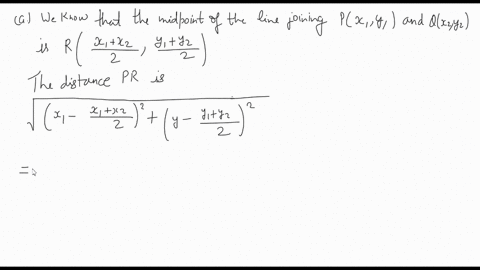 (a) We know that the midpoint of the line joining P(x₁,y₁) and Q(x₂,y₂)
is R( (x₁+x₂)/2 , (y₁+y₂)/2 )
The distance PR is
√( (x₁ - (x₁+x₂)/2)² + (y - (y₁+y₂)/2)² )
=